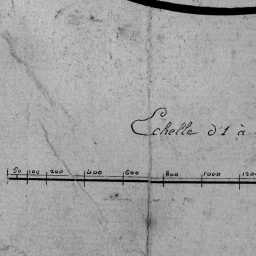 Echelle d'1 à
50 100 200 400 600 800 1000 1200